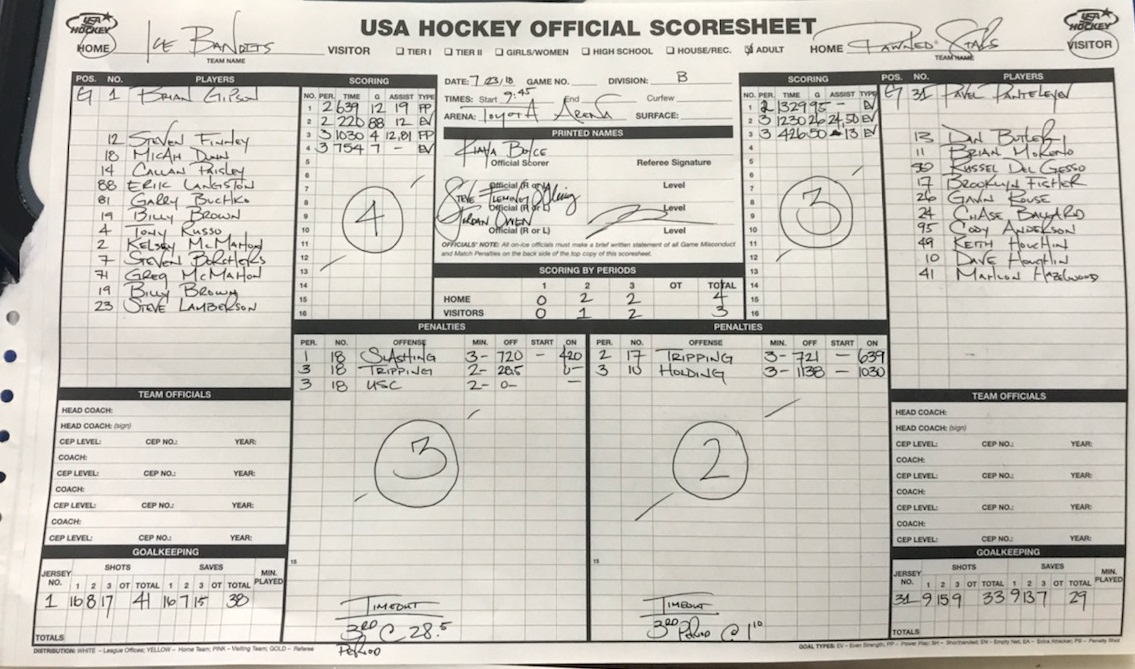 USA HOCKEY OFFICIAL SCORESHEET
USA HOCKEY
HOME ICE BANDITS VISITOR
TEAM NAME
☐ TIER I ☐ TIER II ☐ GIRLS/WOMEN ☐ HIGH SCHOOL ☐ HOUSE/REC. ☑ ADULT
HOME PAWNED STARS VISITOR
TEAM NAME
USA HOCKEY
POS. NO. PLAYERS
G 1 BRIAN GIPSON
12 STEVEN FINLEY
18 MICAH DUNN
14 CALLAN PAISLEY
88 ERIC LANGSTON
81 GARRY BUCHKO
19 BILLY BROWN
4 TONY RUSSO
2 KELSEY MCMAHON
7 STEVEN BORCHERS
71 GREG MCMAHON
19 BILLY BROWN
23 STEVE LAMBERSON
SCORING
NO. PER. TIME G ASSIST TYPE
1 2 639 12 19 PP
2 2 220 88 12 EV
3 3 1030 4 12,81 PP
4 3 754 7 - EV
5
6
7
8
9
10
11
12
13
14
15
16
4
DATE: 7/23/18 GAME NO. DIVISION: B
TIMES: Start 9:45 End Curfew
ARENA: TOYOTA ARENA SURFACE:
PRINTED NAMES
BOYCE
Official Scorer Referee Signature
Official (R or L) Level
STEVE FLEMING
Official (R or L) Level
JORDAN OWEN
Official (R or L) Level
OFFICIALS' NOTE: All on-ice officials must make a brief written statement of all Game Misconduct
and Match Penalties on the back side of the top copy of this scoresheet.
SCORING BY PERIODS
1 2 3 OT TOTAL
HOME 0 2 2 4
VISITORS 0 1 2 3
SCORING
NO. PER. TIME G ASSIST TYPE
1 2 1329 95 - EV
2 3 1230 26 24,50 EV
3 3 426 50 13 EV
4
5
6
7
8
9
10
11
12
13
14
15
16
3
POS. NO. PLAYERS
G 31 PAVEL PANTELEYEV
13 DAN BUTLER
11 BRIAN MORENO
50 RUSSEL DEL GESSO
17 BROOKLYN FISHER
26 GAVIN ROUSE
24 CHASE BALLARD
95 CODY ANDERSON
49 KEITH HOUCHIN
10 DAVE HOUCHIN
41 MARLON HAZELWOOD
PENALTIES
PER. NO. OFFENSE MIN. OFF START ON
1 18 SLASHING 3- 720 - 420
3 18 TRIPPING 2- 28.5 0-
3 18 USC 2- 0- -
3
TIMEOUT
3RD @ 28.5
PERIOD
PENALTIES
PER. NO. OFFENSE MIN. OFF START ON
2 17 TRIPPING 3- 721 - 639
3 10 HOLDING 3- 1138 - 1030
2
TIMEOUT
3RD PERIOD @ 1:10
TEAM OFFICIALS
HEAD COACH:
HEAD COACH: (sign)
CEP LEVEL: CEP NO.: YEAR:
COACH:
CEP LEVEL: CEP NO.: YEAR:
COACH:
CEP LEVEL: CEP NO.: YEAR:
COACH:
CEP LEVEL: CEP NO.: YEAR:
GOALKEEPING
JERSEY NO. SHOTS SAVES MIN. PLAYED
1 2 3 OT TOTAL 1 2 3 OT TOTAL
1 16 8 17 41 16 7 15 38
TOTALS
TEAM OFFICIALS
HEAD COACH:
HEAD COACH: (sign)
CEP LEVEL: CEP NO.: YEAR:
COACH:
CEP LEVEL: CEP NO.: YEAR:
COACH:
CEP LEVEL: CEP NO.: YEAR:
COACH:
CEP LEVEL: CEP NO.: YEAR:
GOALKEEPING
JERSEY NO. SHOTS SAVES MIN. PLAYED
1 2 3 OT TOTAL 1 2 3 OT TOTAL
31 9 15 9 33 9 13 7 29
TOTALS
DISTRIBUTION: WHITE – League Offices; YELLOW – Home Team; PINK – Visiting Team; GOLD – Referee
GOAL TYPES: EV – Even Strength, PP – Power Play, SH – Shorthanded, EN – Empty Net, EA – Extra Attacker, PS – Penalty Shot